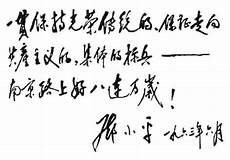 一贯保持光荣传统的、保证走向
共产主义的、集体的标兵——
南京路上好八连万岁！
邓小平 一九六三年六月